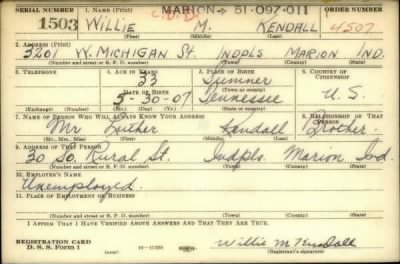 SERIAL NUMBER 1. NAME (Print) MARION - 51-097-011 ORDER NUMBER
1503 WILLIE M. KENDALL 4507
(First) (Middle) (Last)
2. ADDRESS (Print)
3201 W. MICHIGAN St. INDPLS MARION IND.
(Number and street or R. F. D. number) (Town) (County) (State)
3. TELEPHONE 4. AGE IN YEARS 5. PLACE OF BIRTH 6. COUNTRY OF CITIZENSHIP
33 Sumner
DATE OF BIRTH (Town or county)
5-30-07 Tennessee U. S.
(Exchange) (Number) (Mo.) (Day) (Yr.) (State or country)
7. NAME OF PERSON WHO WILL ALWAYS KNOW YOUR ADDRESS 8. RELATIONSHIP OF THAT PERSON
Mr Luther Kendall Brother
(Mr., Mrs., Miss) (First) (Middle) (Last)
9. ADDRESS OF THAT PERSON
30 So. Rural St. Indpls. Marion Ind.
(Number and street or R. F. D. number) (Town) (County) (State)
10. EMPLOYER'S NAME
Unemployed.
11. PLACE OF EMPLOYMENT OR BUSINESS
(Number and street or R. F. D. number) (Town) (County) (State)
I AFFIRM THAT I HAVE VERIFIED ABOVE ANSWERS AND THAT THEY ARE TRUE.
REGISTRATION CARD
D. S. S. FORM 1 Willie M Kendall
(Registrant's signature)